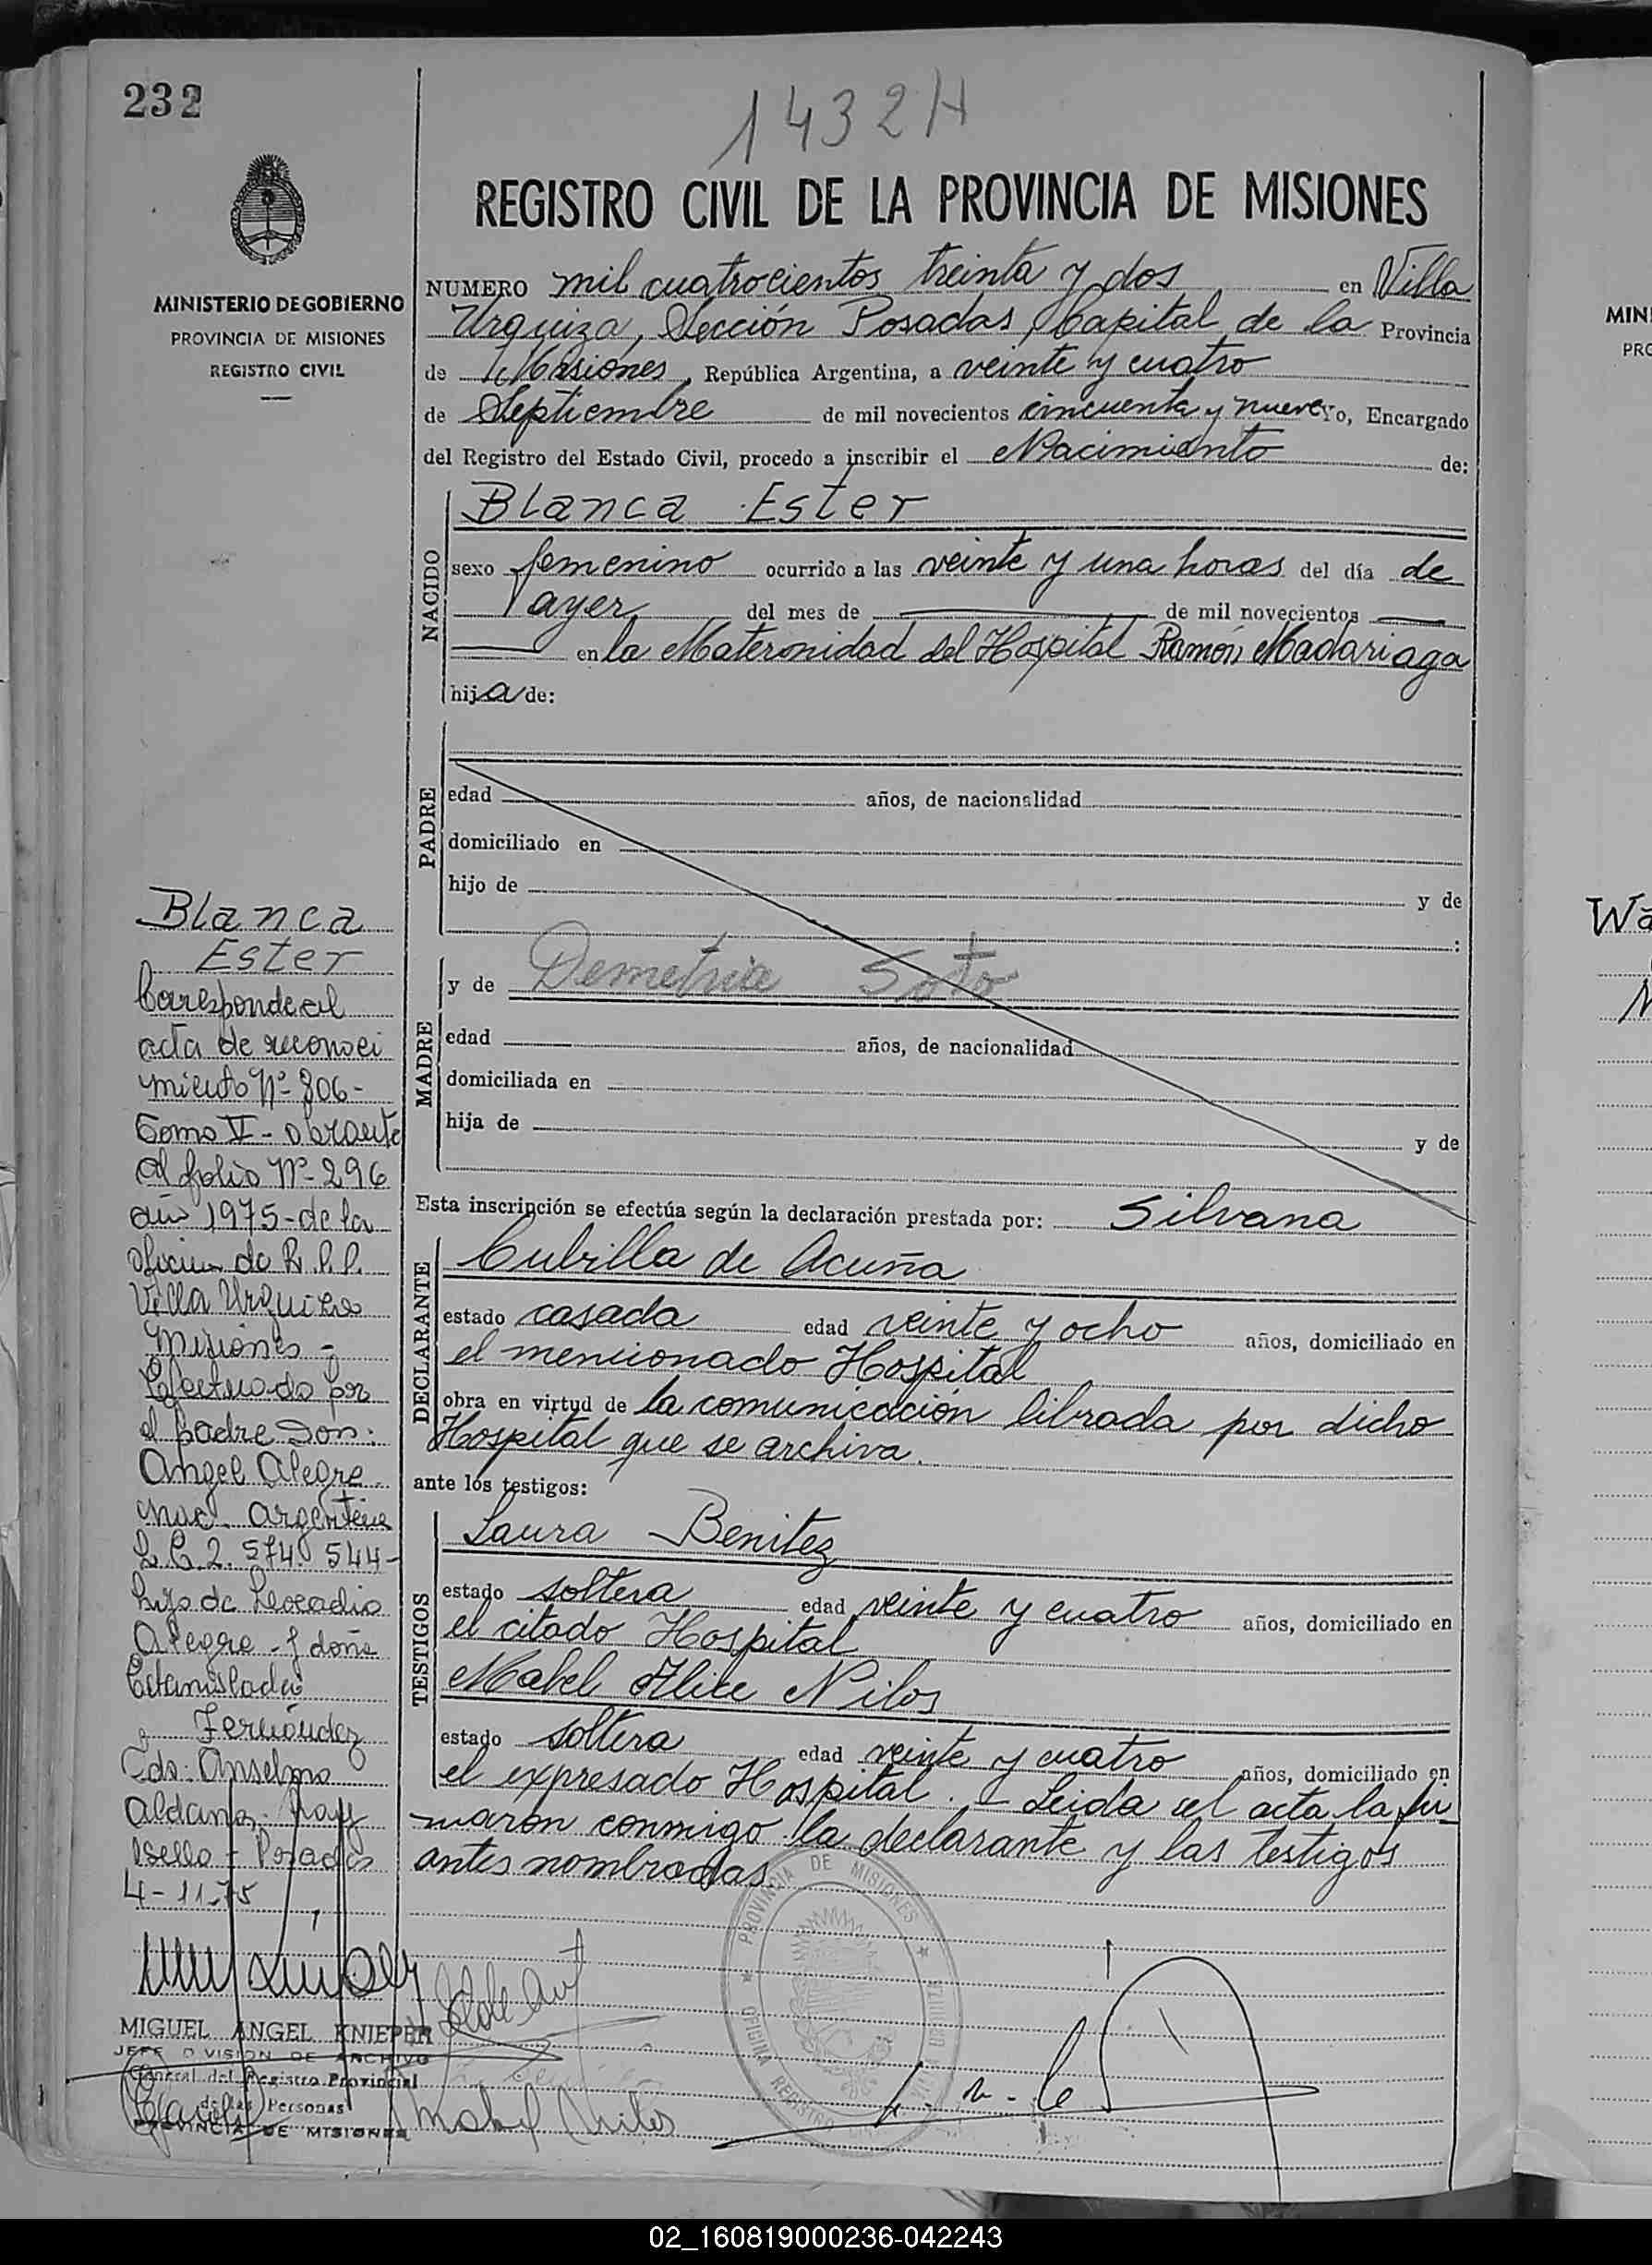 232
1432 H
REGISTRO CIVIL DE LA PROVINCIA DE MISIONES
MINISTERIO DE GOBIERNO
PROVINCIA DE MISIONES
REGISTRO CIVIL
NUMERO mil cuatrocientos treinta y dos en Villa
Urquiza, Sección Posadas, Capital de la Provincia
de Misiones, República Argentina, a veinte y cuatro
de Septiembre de mil novecientos cincuenta y nueve Yo, Encargado
del Registro del Estado Civil, procedo a inscribir el Nacimiento de:
NACIDO
Blanca Ester
sexo femenino ocurrido a las veinte y una horas del día de
ayer del mes de de mil novecientos
en la Maternidad del Hospital Ramón Madariaga
hija de:
PADRE
edad años, de nacionalidad
domiciliado en
hijo de y de
:
MADRE
y de Demetria Soto
edad años, de nacionalidad
domiciliada en
hija de y de
Esta inscripción se efectúa según la declaración prestada por: Silvana
DECLARANTE
Cubilla de Acuña
estado casada edad veinte y ocho años, domiciliado en
el mencionado Hospital
obra en virtud de la comunicación librada por dicho
Hospital que se archiva.
ante los testigos:
TESTIGOS
Laura Benitez
estado soltera edad veinte y cuatro años, domiciliado en
el citado Hospital
Mabel Alice Nilos
estado soltera edad veinte y cuatro años, domiciliado en
el expresado Hospital. - Leida el acta la fir
maron conmigo la declarante y las testigos
antes nombradas.
Blanca
Ester
Corresponde al
acta de reconoci
miento Nº 806-
Tomo II - obrante
al folio Nº 296
año 1975 - de la
oficina de R.P.P.
Villa Urquiza
Misiones -
Efectuado por
el padre Don:
Angel Alegre.
nac. argentina
L.E. 2.574.544-
hijo de Leocadio
Alegre - y doña
Estanislada
Fernández
Fdo: Anselmo
Aldana. hay
sello - Posadas
4-11-75
MIGUEL ANGEL KNIEPER
JEFE DIVISION DE ARCHIVO
General del Registro Provincial
de las Personas
PROVINCIA DE MISIONES
PROVINCIA DE MISIONES
OFICINA REGISTRO
Mabel Nilos
Wa
MIN
PRO
02_160819000236-042243